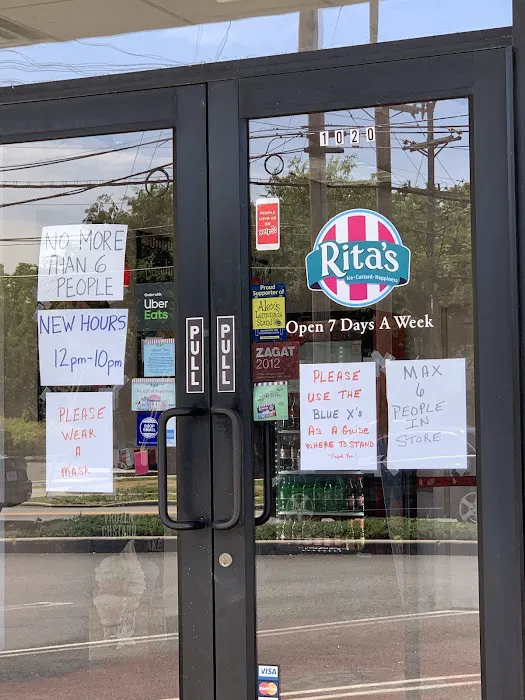 1020
PEOPLE
LOVE US
ON
yelp
NO MORE
THAN 6
PEOPLE
Rita's
Ice-Custard-Happiness
Order with
Uber
Eats
Proud
Supporter of
Alex's
Lemonade
Stand
NEW HOURS
12pm-10pm
Open 7 Days A Week
PULL
PULL
ZAGAT
2012
PLEASE
USE THE
BLUE X's
AS A GUIDE
WHERE TO STAND
Thank You
MAX
6
PEOPLE
IN
STORE
PLEASE
WEAR
A
MASK
SHOP
SMALL
FROZEN
CUSTARD
VISA
MasterCard